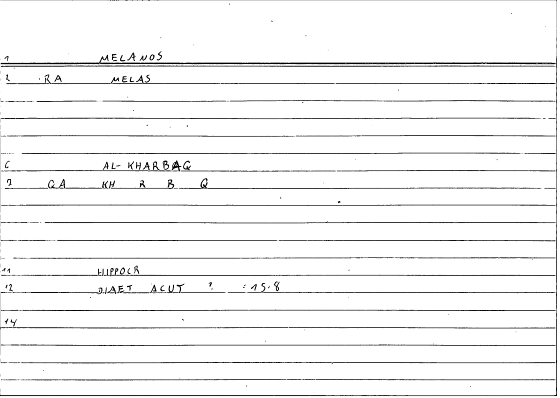 1 MELANOS
2 RA MELAS
6 AL-KHARBAQ
7 QA KH R B Q
11 HIPPOCR
12 DIAET ACUT ? :15.8
14